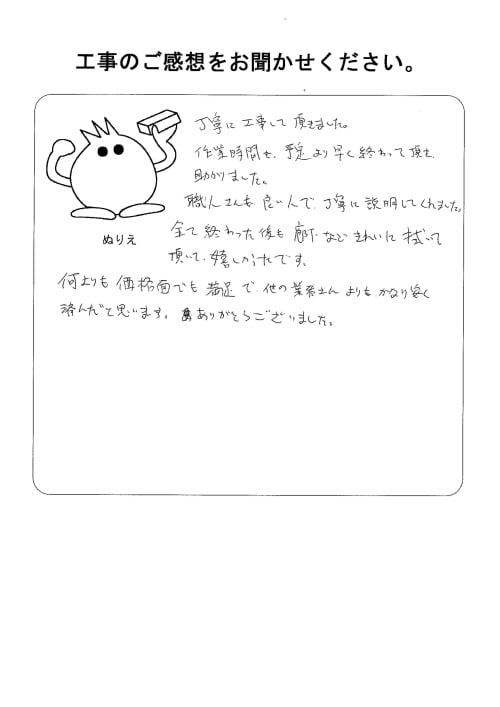 工事のご感想をお聞かせください。
丁寧に工事して頂きました。
作業時間も、予定より早く終わって頂き、
助かりました。
職人さんも良い人で、丁寧に説明してくれました。
ぬりえ
全て終わった後も廊下などきれいに拭いて
頂いて、嬉しかったです。
何よりも価格面でも満足で、他の業者さんよりもかなり安く
済んだと思います。ありがとうございました。